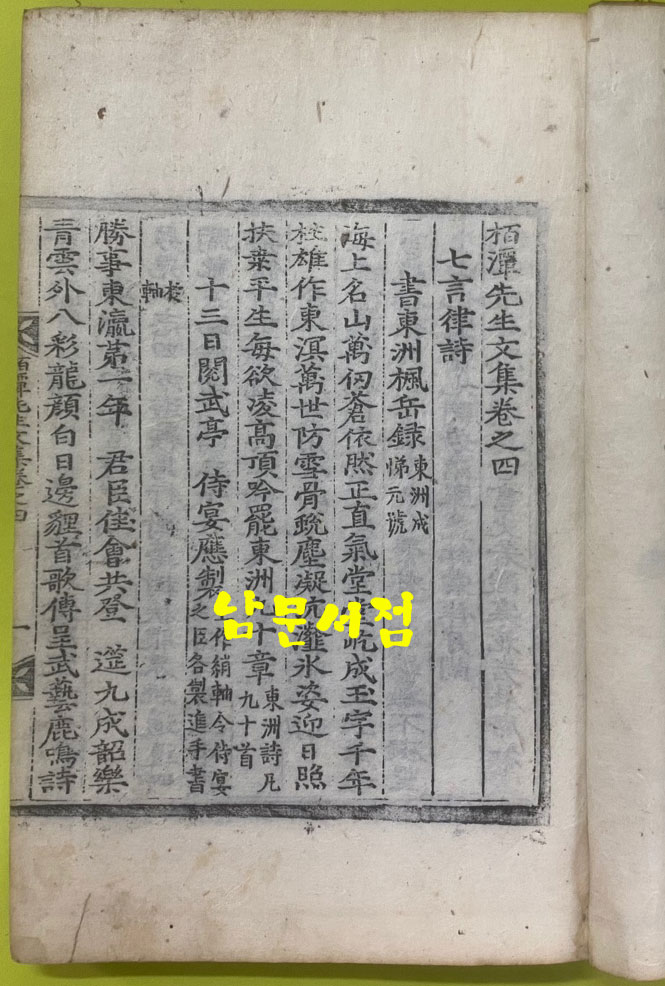 栢潭先生文集卷之四
七言律詩
書東洲楓岳錄 東洲成
悌元號
海上名山萬仞蒼依然正直氣堂堂屹成玉宇千年
柱雄作東溟萬世防雪骨蛻塵凝沆瀣氷姿迎日照
扶桒平生每欲凌高頂吟罷東洲九十章 東洲詩凡
九十首
十三日閱武亭 侍宴應製 作絹軸令侍宴
之臣各製進手書
於軸
勝事東瀛第一年 君臣佳會共登 筵九成韶樂
青雲外八彩龍顔白日邊貍首歌傳呈武藝鹿鳴詩
栢潭先生文集卷之四 一
남문서점